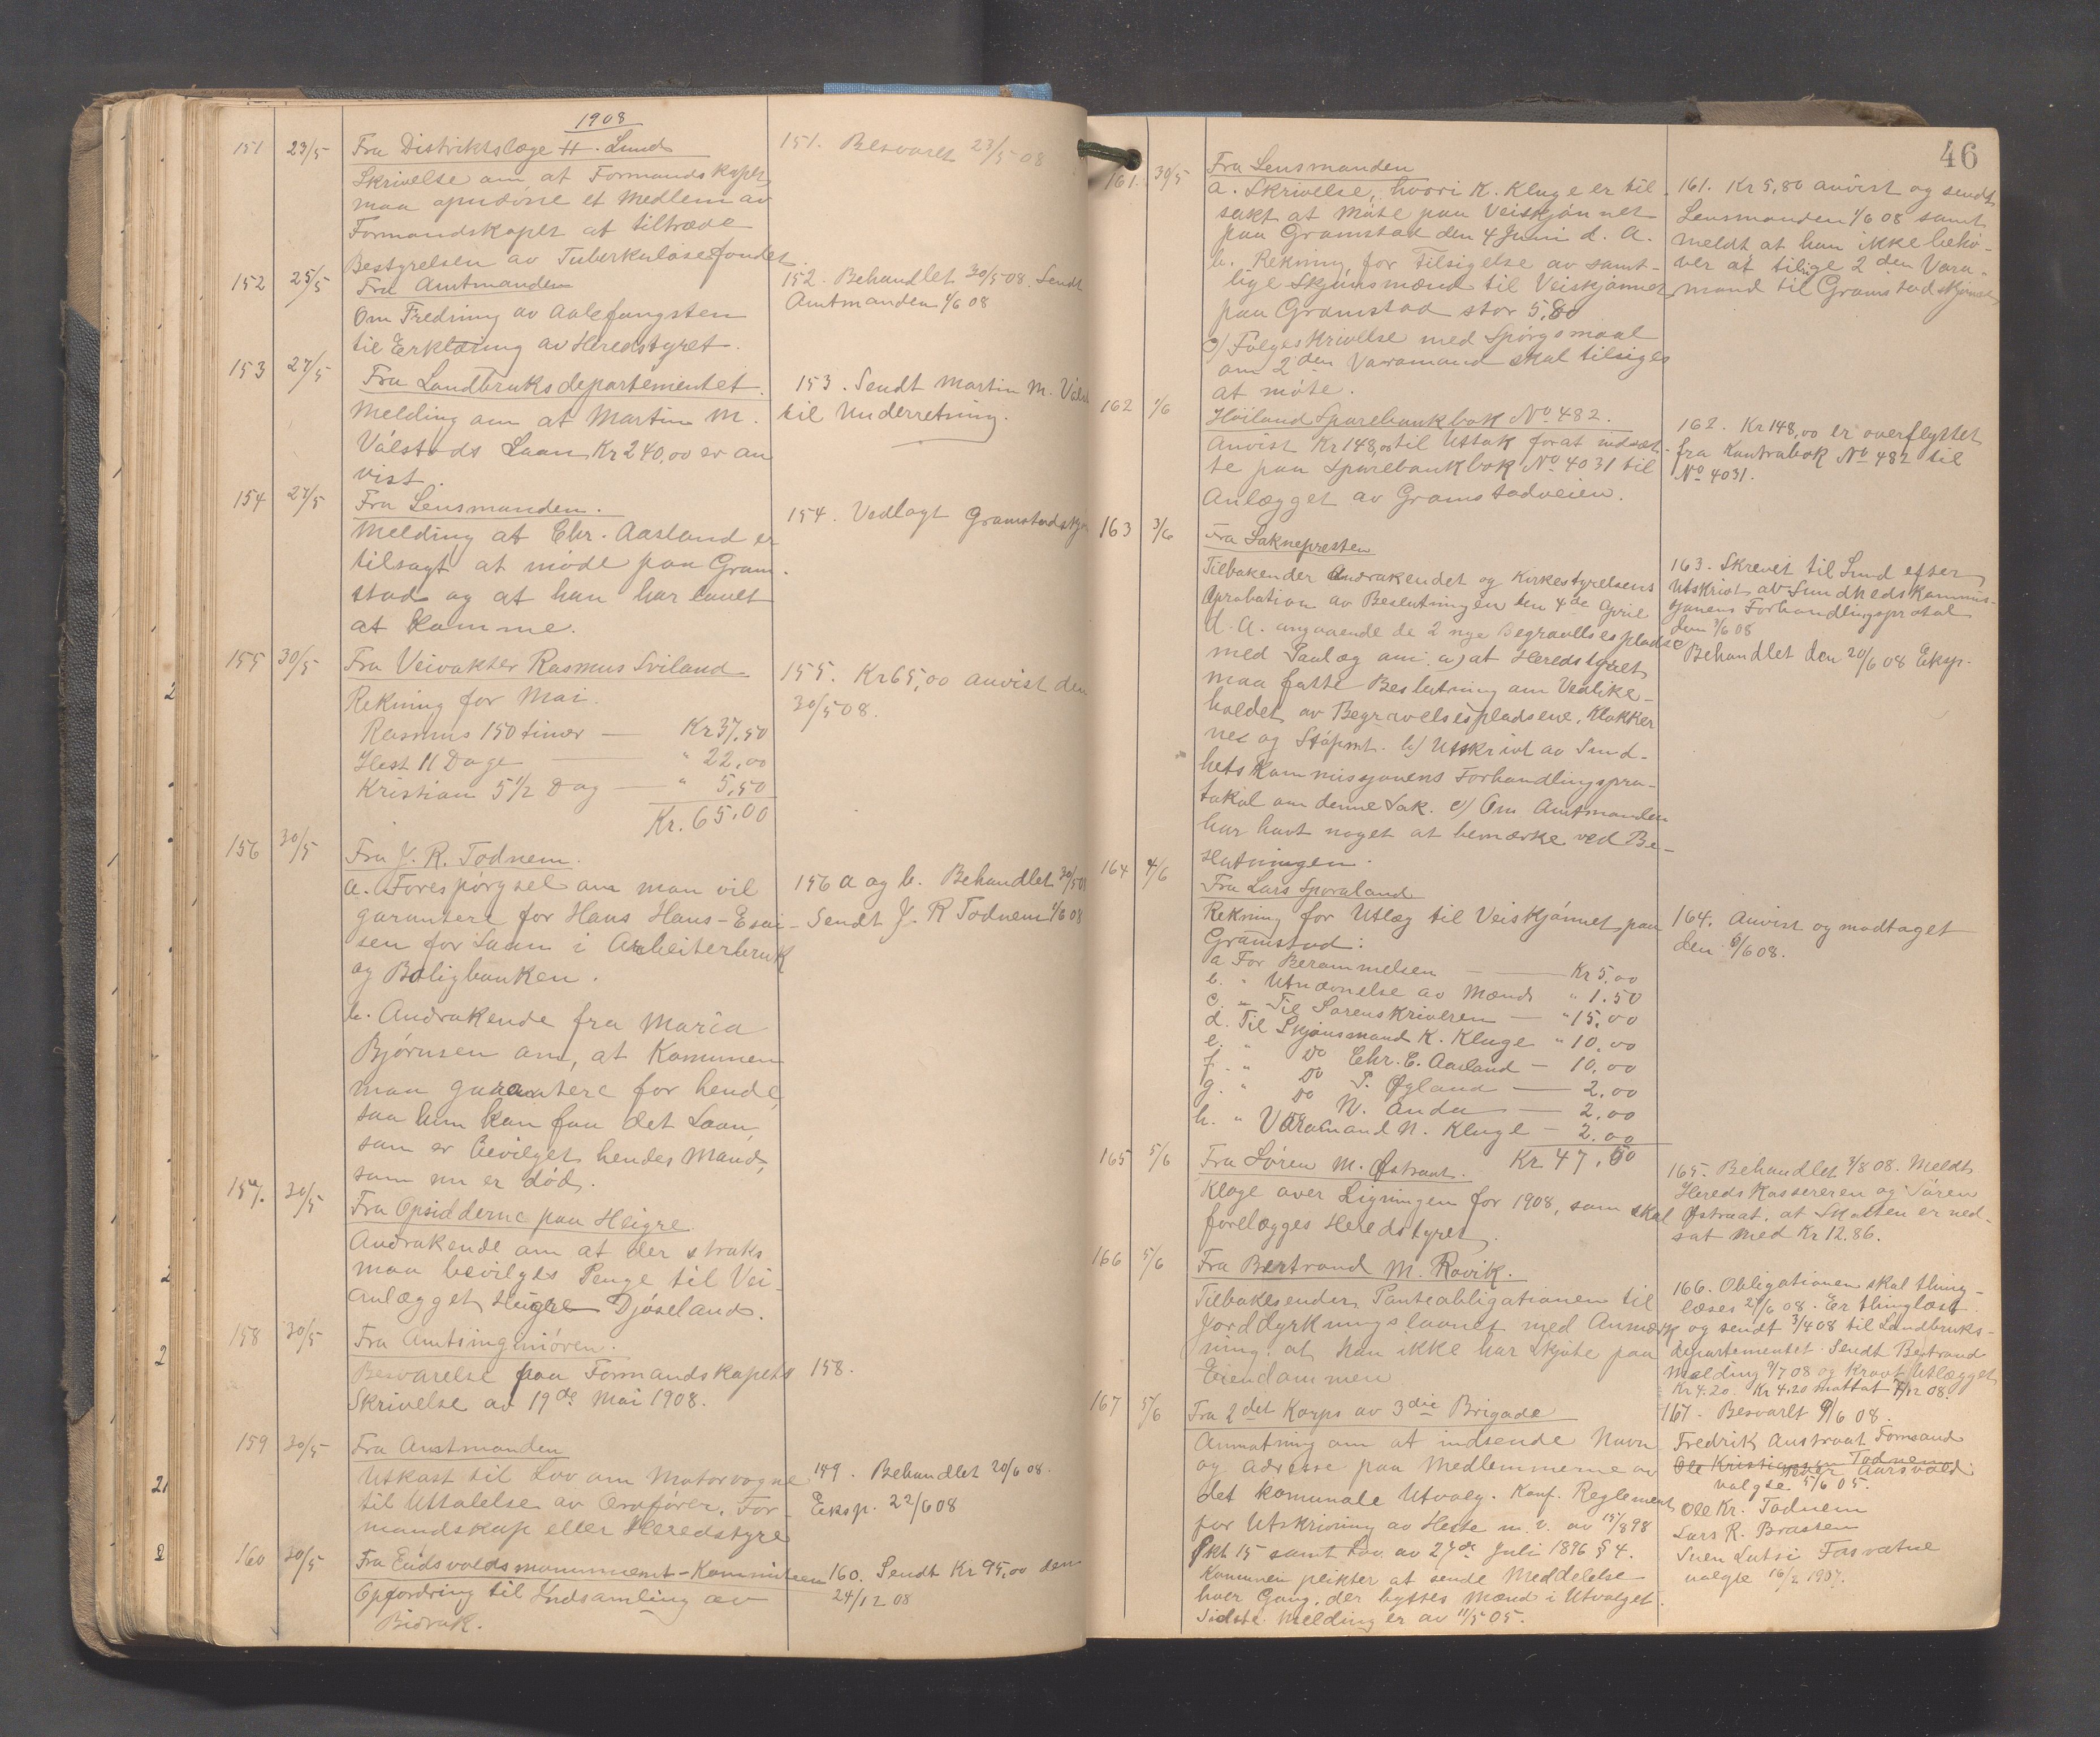 1908
151 23/5 Fra Distriktslæge H. Lund
Skrivelse om, at Formandskapet
maa opnævne et Medlem av
Formandskapet at tiltræde
Bestyrelsen av Tuberkulosefondet.
151. Besvaret 23/5 08
152 25/5 Fra Amtmanden
Om Fredning av Aalefangsten
til Erklæring av Heredstyret.
152. Behandlet 30/5 08. Sendt
Amtmanden 1/6 08
153 27/5 Fra Landbruksdepartementet.
Melding om at Martin M.
Válstads Laan Kr 240,00 er an
vist.
153. Sendt Martin M.
til Underretning.
154 27/5 Fra Lensmanden.
Melding at Chr. Aasland er
tilsagt at møde paa Gram-
stad og at han har lovet
at komme.
154. Vedlagt
155 30/5 Fra Veivakter Rasmus Sviland
Rekning for Mai.
Rasmus 150 timer — Kr 37,50
Hest 11 Dage — " 22,00
Kristian 5 1/2 Dag — " 5,50
Kr. 65,00
155. Kr 65,00 anvist den
30/5 08.
156 30/5 Fra J. R. Todnem.
a. Forespórgsel om man vil
garantere for Hans Hans-Esai-
sen for Laan i Arbeiterbruk
og Boligbanken.
b. Andrakende fra Maria
Bjørnsen om, at Komunen
maa garantere for hende,
saa hun kan faa det Laan,
som er bevilget hendes Mand,
som nu er død.
156 a og b. Behandlet 30/5 08
Sendt J. R Todnem 1/6 08
157. 30/5 Fra Opsidderne paa Heigre
Andrakende om at der straks
maa bevilges Penge til Vei-
anlægget Heigre Djóseland.
158 30/5 Fra Amtsingenióren.
Besvarelse paa Formandskapets
Skrivelse av 19de Mai 1908.
158.
159 30/5 Fra Amtmanden
Utkast til Lov om Motorvogne
til Uttalelse av Ordfører, For-
mandskap eller Heredstyre
149. Behandlet 20/6 08.
Eksp. 22/6 08
160 30/5 Fra Eidsvoldsmonument-Kommiteen
Opfordring til Indsamling av
Bidrak.
160. Sendt Kr 95,00 den
24/12 08
46
161. 30/5 Fra Lensmanden
a. Skrivelse, hvori K. Kluge er til-
sakt at móte paa Veiskjónnet
paa Gramstad den 4 Juni d. A.
b. Rekning for Tilsigelse av samt-
lige Skjónsmænd til Veiskjónnet
paa Gramstad stor 5,80
c) Følgeskrivelse med Spórgsmaal
om 2den Varamand skal tilsiges
at móte.
161. Kr 5,80 anvist og sendt
Lensmanden 1/6 08 samt
meldt at han ikke behó-
ver at tilsige 2den Vara-
mand til Gramstadskjónnet
162 1/6 Høiland Sparebankbok No 482.
Anvist Kr 148,00 til Uttak for at indsæt-
te paa Sparebankbok No 4031 til
Anlægget av Gramstadveien.
162. Kr 148,00 er overflyttet
fra Kontrabok No 482 til
No 4031.
163 3/6 Fra Soknepresten
Tilbakesender Andrakendet og Kirkestyrelsens
Aprobation av Beslutningen den 4de April
d. A. angaaende de 2 nye Begravelsespladse
med Paalæg om: a) at Heredstyret
maa fatte Beslutning om Vedlike-
holdet av Begravelsespladsene, Klokker
nes og Stópmt. b) Utskrivt av Sund-
hetskommissjonens Forhandlingspro-
tokol om denne Sak. c) Om Amtmanden
har havt noget at bemærke ved Be-
slutningen.
163. Skrevet til Lund efter
Utskrivt av Sundhedskommis-
sjonens Forhandlingsprotol
den 3/6 08
Behandlet den 20/6 08 Eksp.
164 4/6 Fra Lars Sporaland
Rekning for Utlæg til Veiskjónnet paa
Gramstad:
a For Berammelsen — Kr 5,00
b. " Utnævnelse av Mænd " 1.50
c. " Til Sorenskriveren — " 15,00
d. Til Skjónsmand K. Kluge " 10,00
e. " Do Chr. C. Aasland — 10,00
f. " Do P. Øgland — 2,00
g. " Do N. Anda — 2,00
h. " Varamand N. Kluge — 2.00
Kr 47.50
164. Anvist og modtaget
den 6/6 08.
165 5/6 Fra Sóren M. Østraat.
Klage over Ligningen for 1908, som skal
forelægges Heredstyret.
165. Behandlet 3/8 08. Meldt
Heredskassereren og Sóren
Østraat, at Skatten er ned-
sat med Kr 12.86.
166 5/6 Fra Bertrand M. Rovik.
Tilbakesender Panteobligationen til
Jorddyrkningslaanet med Anmerk
ning, at han ikke har skjóte paa
Eiendommen
166. Obligationen skal thing-
læses 27/6 08. Er thinglæst
og sendt 3/4 08 til Landbruks-
departementet. Sendt Bertrand
Melding 9/7 08 og Krævt Utlægget
Kr 4.20. Kr 4.20 mottat 7/12 08.
167 5/6 Fra 2det Korps av 3die Brigade
Anmotning om at indsende Navn
og Adresse paa Medlemmerne av
det komunale Utvalg. Konf. Reglement
for Utskrivning av Heste m. v. av 15/8 98
Pkt 15 samt Lov av 27de Juli 1896 § 4.
Komunen plikter at sende Meddelelse
hver Gang, der byttes Mænd i Utvalget.
Sidste Melding er av 11/5 05.
167. Besvarlt 9/6 08.
Fredrik Austraat Formand
Ole Kristiansen Todnem
Aarsvold
valgte 5/6 05.
Ole Kr. Todnem
Lars R. Brasten
Sven Lutsi Fosvatne
valgte 16/2 1907.